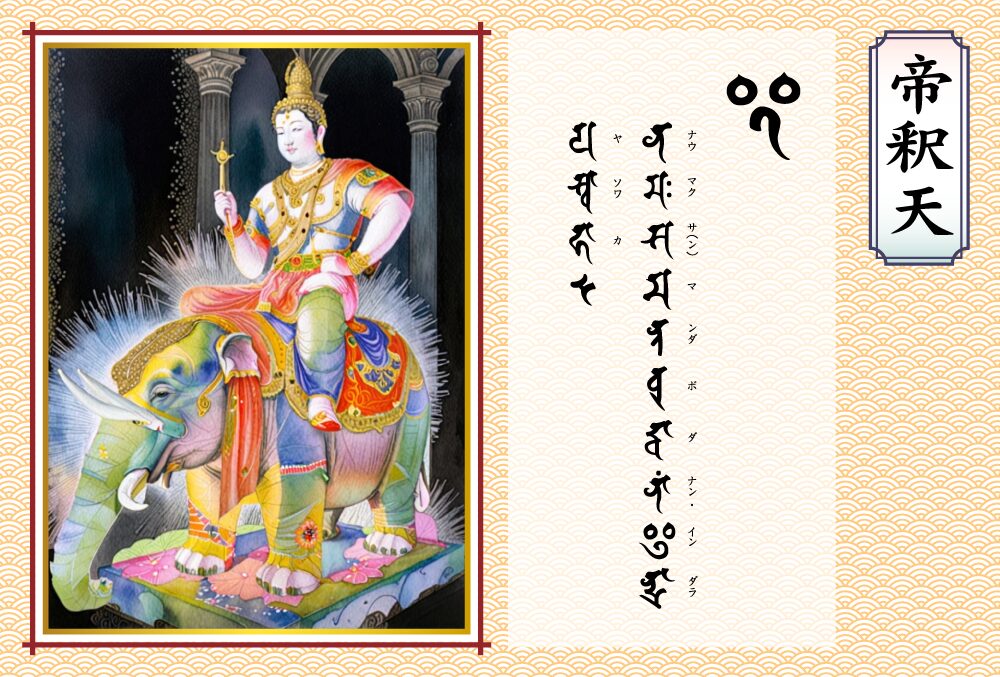 帝釈天
𑖂
ナウ マク サ(ン) マ ンダ ボ ダ ナン・ イン ダラ
𑖡𑖦𑖾𑖭𑖦𑖡𑖿𑖝𑖤𑖲𑖟𑖿𑖠𑖯𑖡𑖯𑖽𑖂𑖡𑖿𑖟𑖿𑖨𑖯
ヤ ソワ カ
𑖧𑖭𑖿𑖪𑖯𑖮𑖯